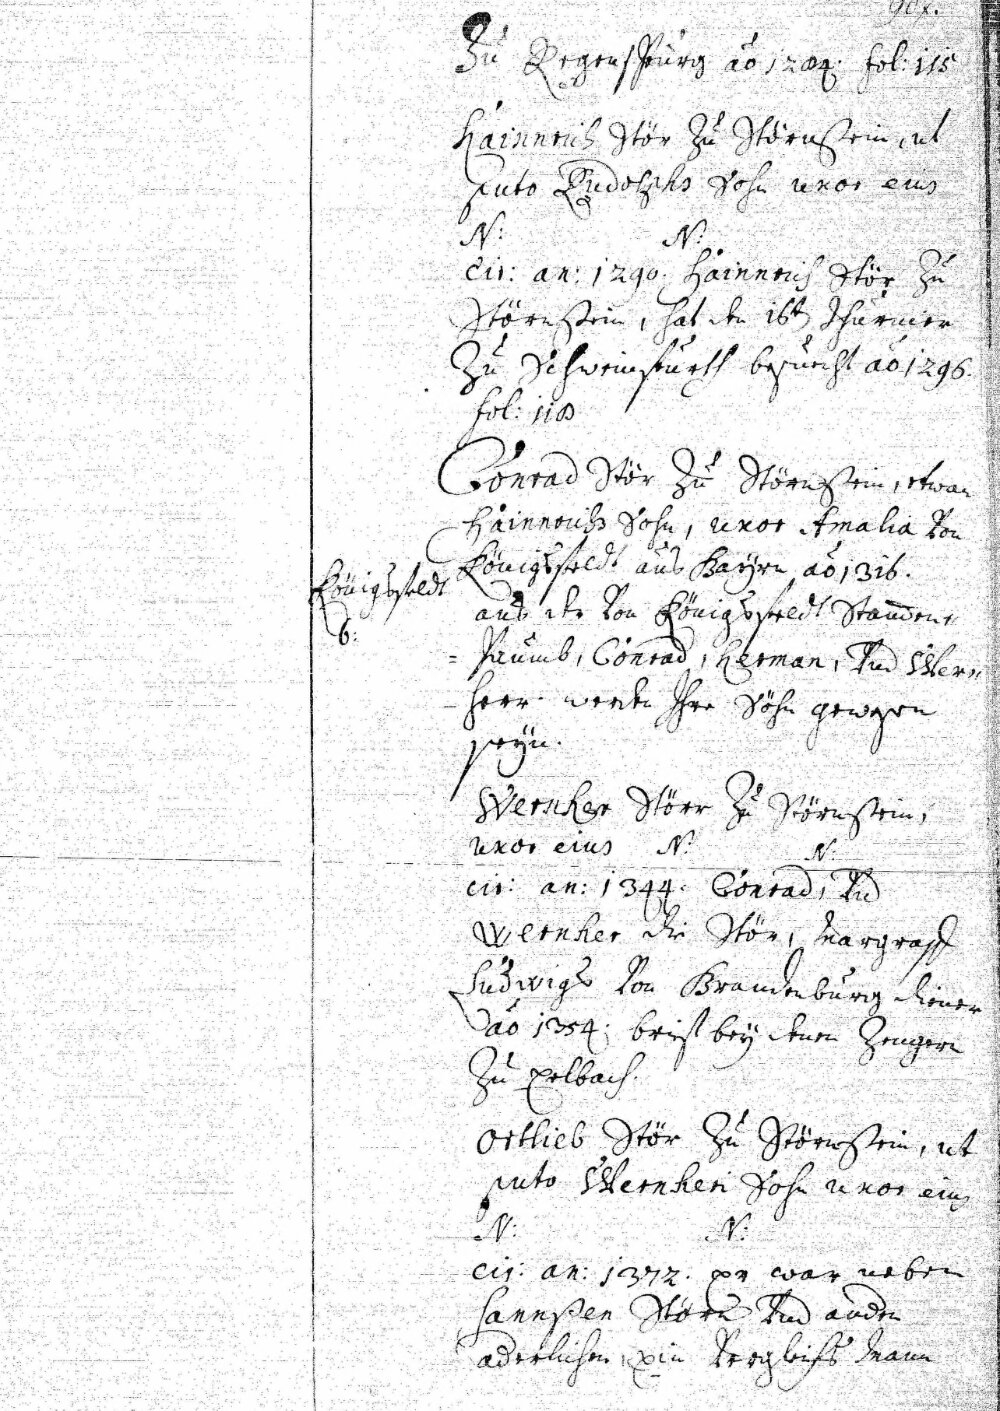 Zu Regenspurg aõ 1284. fol: 115
Hainnrich Stör Zu Störnstein, ut
puto Rudolphs Sohn uxor eius
N: N:
cir: an: 1290. Hainnrich Stör Zu
Störnstein, hat den 16t Thurnier
Zu Schweinfurth besucht aõ 1296.
fol: 118
Conrad Stör Zu Störnstein, etwan
Hainnrichs Sohn, uxor Amalia Von
Königsfeldt aus Bayrn aõ 1316.
aus der Von Königsfeldt Stammen
Königsfeldt
6:
= Paumb, Conrad, Herman, Vnd Wern
herr werden Ihre Söhn gewesen
seyn.
Wernher Störr Zu Störnstein,
uxor eius N: N:
cir: an: 1344. Conrad, Vnd
Wernher die Stör, Margraff
Ludwigs Von Brandenburg diener
aõ 1354. brieff bey denen Zengern
Zu
Ortlieb Stör Zu Störnstein, ut
puto Wernheri Sohn uxor eius
N: N:
cir: an: 1372. er war neben
Hannßen Störn Vnd andern
adelichen, ein Vergleichs Mann